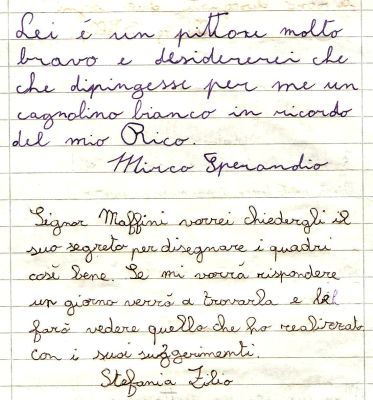 Lei é un pittore molto
bravo e desidererei che
che dipingesse per me un
cagnolino bianco in ricordo
del mio Rico.
Mirco Sperandio
Signor Maffini vorrei chiedergli il
suo segreto per disegnare i quadri
così bene. Se mi vorrà rispondere
un giorno verrò a trovarla e
farò vedere quello che ho realizzato
con i suoi suggerimenti.
Stefania Zilio